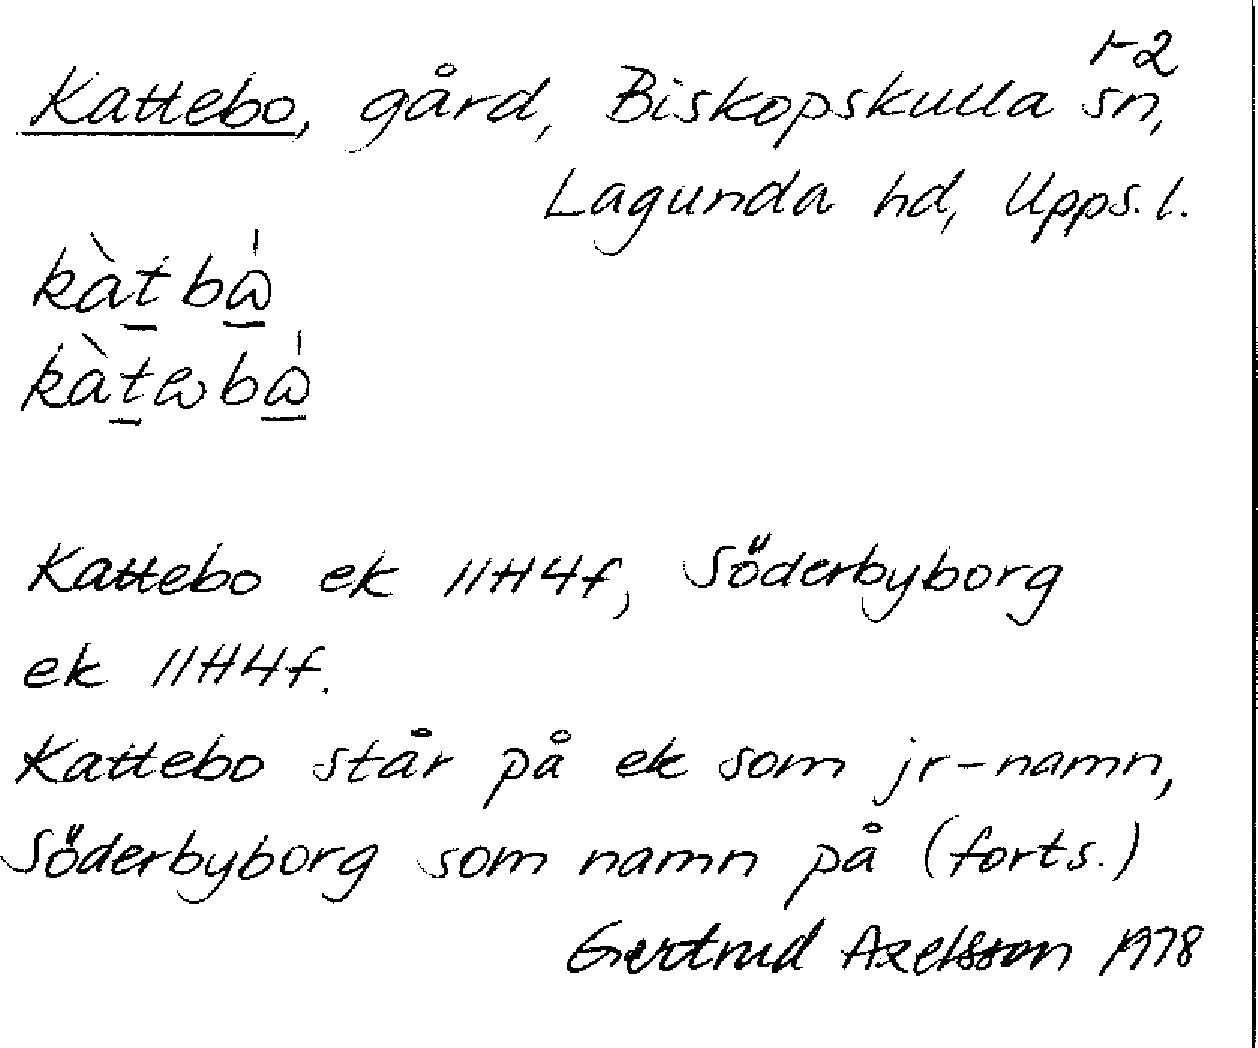 1-2
Kattebo, gård, Biskopskulla sn,
Lagunda hd, Upps. l.
Kattebo ek 11H4f, Söderbyborg
ek 11H4f.
Kattebo står på ek som jr-namn,
Söderbyborg som namn på (forts.)
Gertrud Axelsson 1978